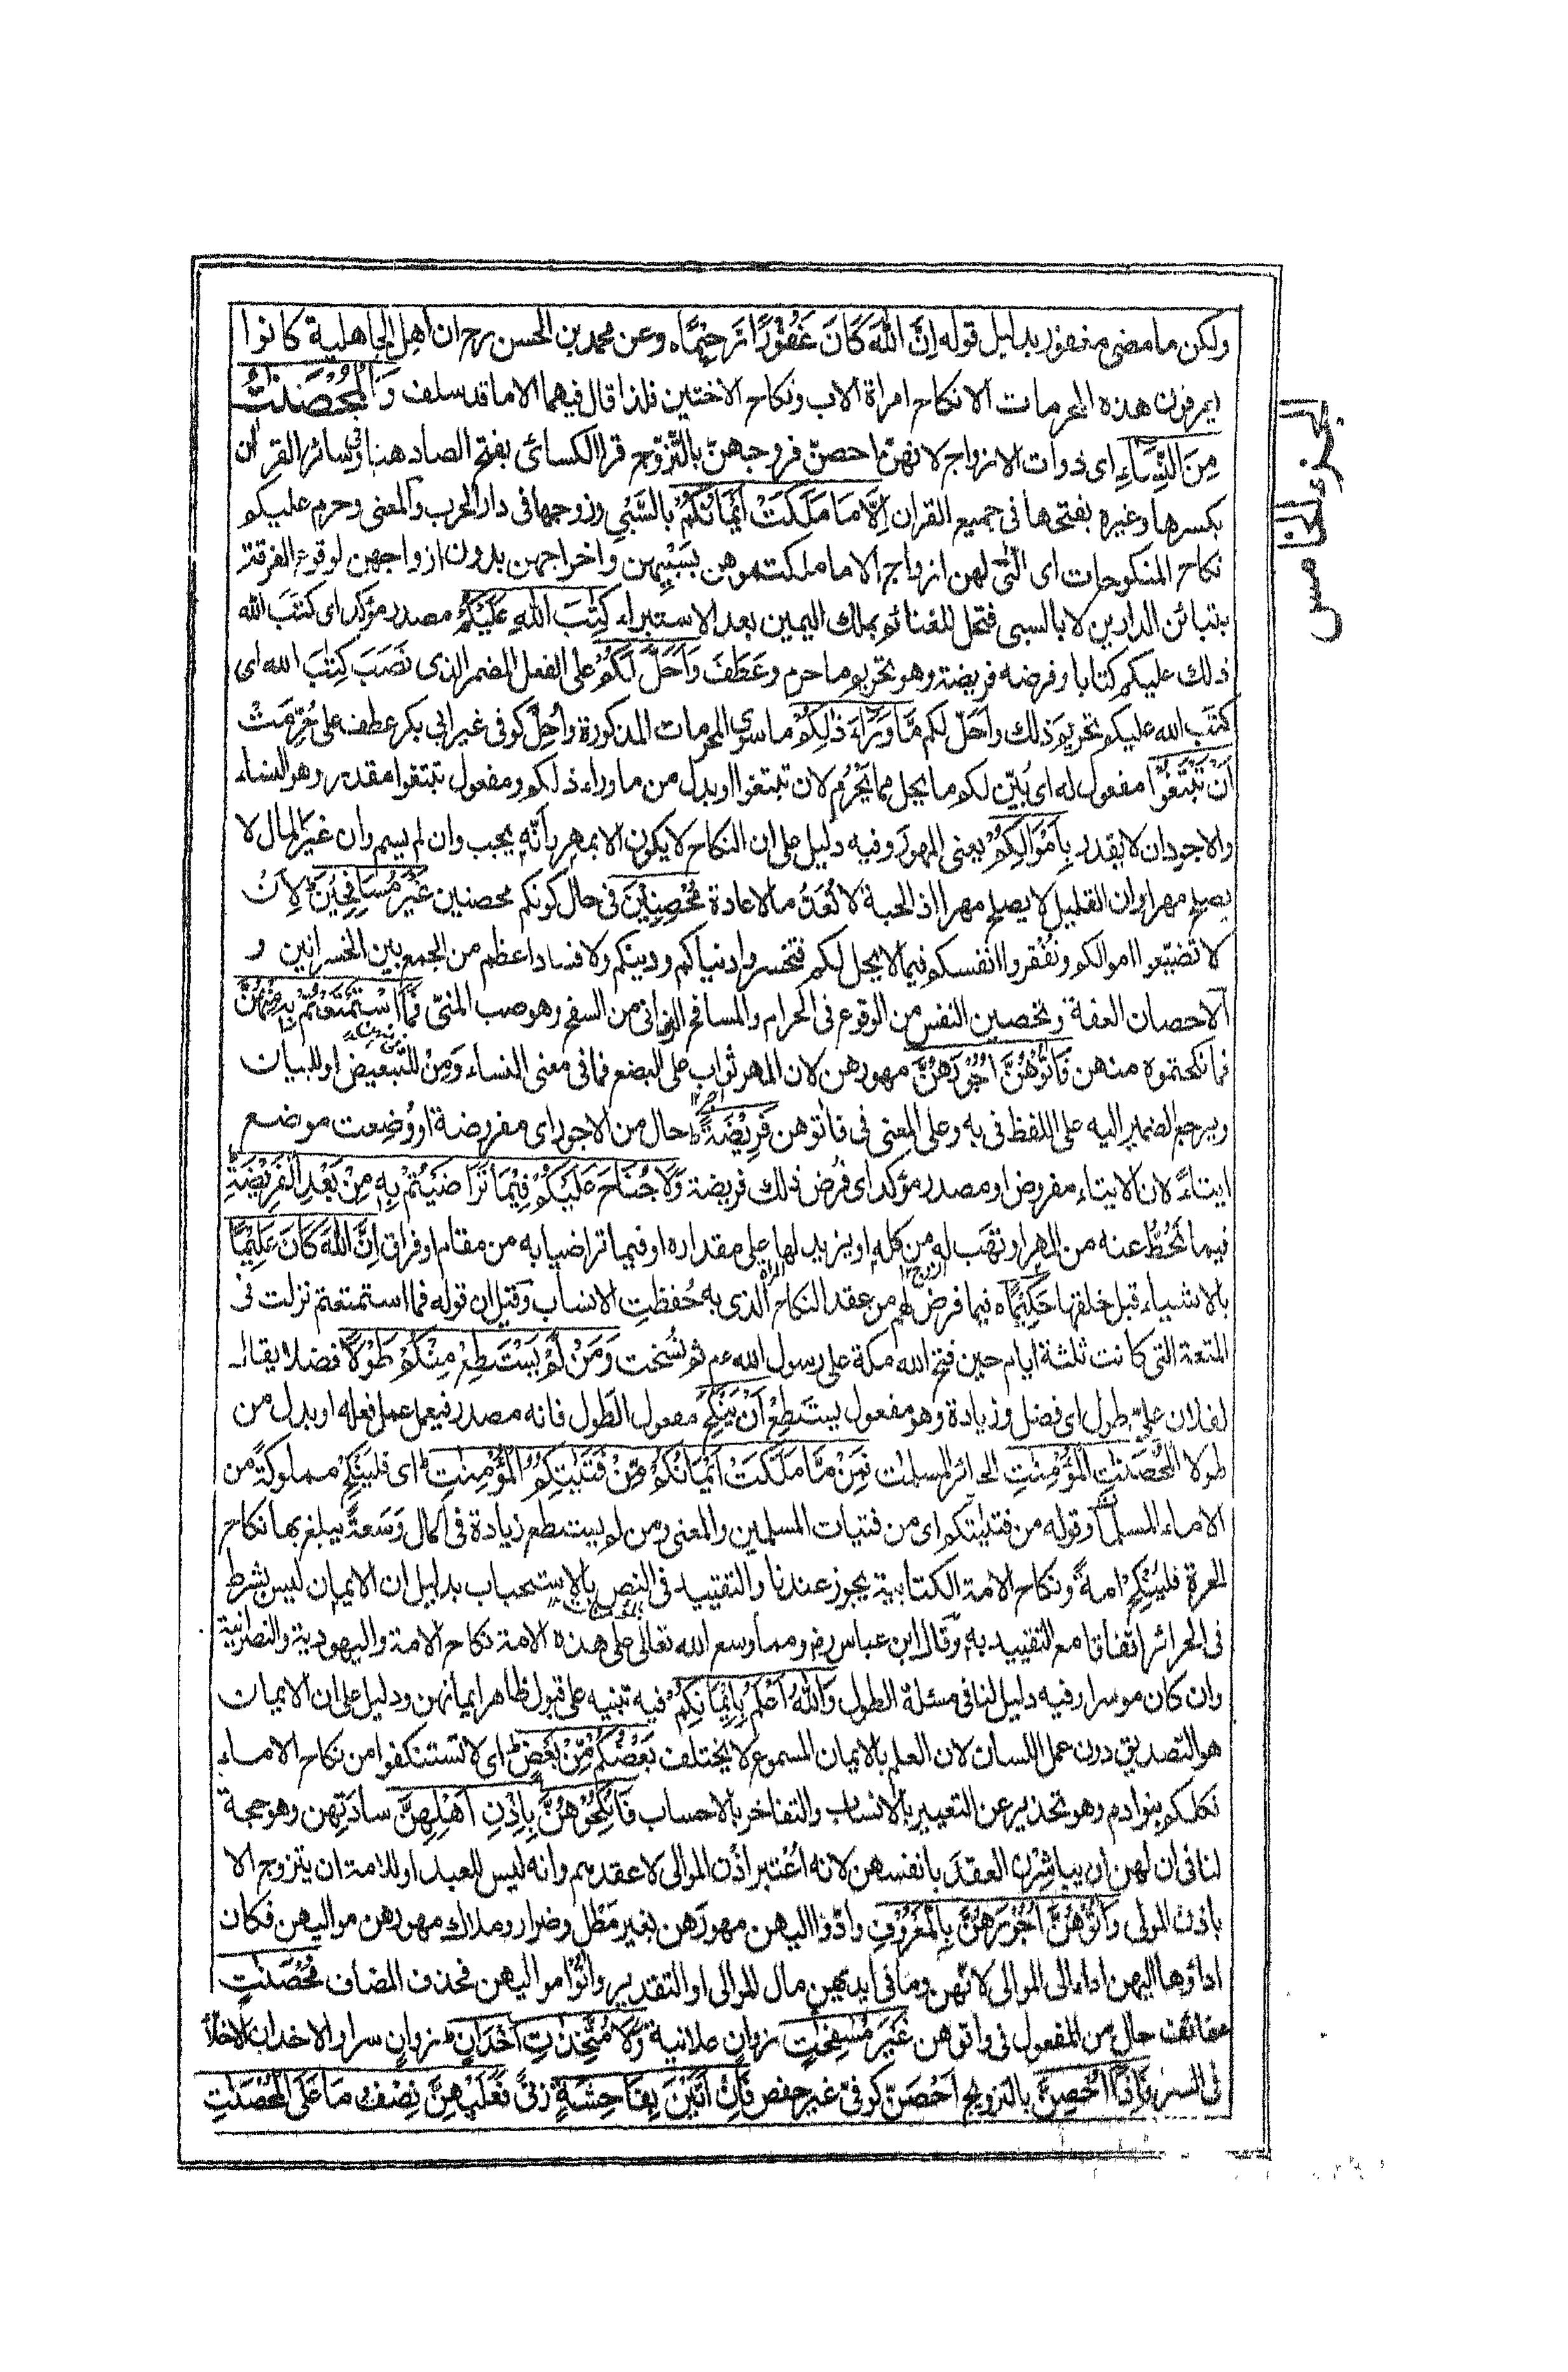 ولكن ما مضى مغفور بدليل قوله اِنَّ اللّٰهَ كَانَ غَفُوْرًا رَّحِيْمًاه وعن محمد بن الحسن رح ان اهل الجاهلية كانوا
يعرفون هذه المحرمات الا نكاح امراة الاب ونكاح الاختين فلذا قال فيهما الا ما قد سلف وَالْمُحْصَنٰتُ
مِنَ النِّسَآءِ اى ذوات الازواج لانهنّ احصنّ فروجهنّ بالتّزوّج قرا الكسائى بفتح الصاد هنا وفى سائر القران
بكسرها وغيره بفتحها فى جميع القران اِلَّا مَا مَلَكَتْ اَيْمَانُكُمْ بالسَّبْىِ وزوجها فى دار الحرب والمعنى وحرم عليكم
نكاح المنكوحات اى الّٰتى لهن ازواج الا ما ملكتموهن بسَبْيِهن واخراجهن بدون ازواجهن لوقوع الفرقة
بتبائن الدارين لا بالسبى فتحل للغنائم بملك اليمين بعد الاستبراء كِتٰبَ اللّٰهِ عَلَيْكُمْ مصدر مؤكد اى كتَبَ الله
ذلك عليكم كتابا وفرضه فريضة وهو تحريم ما حرم وعَطَفَ وَاَحَلَّ لَكُمْ على الفعل المضمر الذى نَصَبَ كِتٰبَ الله اى
كتَب الله عليكم تحريم ذلك واَحَلّ لكم مَّا وَرَآءَ ذٰلِكُمْ ما سوى المحرمات المذكورة وأُحِلَّ كوفى غير ابي بكر عطفه على حُرِّمَتْ
اَنْ تَبْتَغُوْا مفعول له اى بُيِّن لكم ما يحل مما يَحْرُم لان تبتغوا او بدل من ما وراء ذلكم ومفعول تبتغوا مقدر وهو النساء
والاجود ان لا يقدر بِاَمْوَالِكُمْ يعنى المهور وفيه دليل على ان النكاح لا يكون الا بمهر وأنّه يجب وان لم يسم وان غير المال لا
يصلح مهرا وان القليل لا يصلح مهرا اذ الحبة لا تُعَدُّ مالا عادة مُحْصِنِيْنَ فى حال كونكم محصنين غَيْرَ مُسٰفِحِيْنَ لِاَنْ
لا تضيّعوا اموالكم وتُفْقروا انفسكم فيما لا يحل لكم فتخسروا دنياكم ودينكم ولا فساد اعظم من الجمع بين الخسرانين و
الاحصان العفة وتحصين النفس من الوقوع فى الحرام والمسافح الزانى من السفح وهو صب المنىّ فَمَا اسْتَمْتَعْتُمْ بِهٖ مِنْهُنَّ
فما نكحتموه منهن فَاٰتُوْهُنَّ اُجُوْرَهُنَّ مهورهن لان المهر ثواب على البضع فما فى معنى النساء وَمِنْ للتبعيض او للبيان
ويرجع الضمير اليه على اللفظ فى به وعلى المعنى فى فاتوهن فَرِيْضَةً حال من الاجور اى مفروضة او وُضِعت موضع
ايتاءً لان الايتاء مفروض او مصدر مؤكد اى فُرض ذلك فريضة وَلَا جُنَاحَ عَلَيْكُمْ فِيْمَا تَرَاضَيْتُمْ بِهٖ مِنْ بَعْدِ الْفَرِيْضَةِ
فيما تَحُطّ عنه من المهر او تهَب له من كله او يزيد لها على مقداره او فيما تراضيا به من مقام او فراق اِنَّ اللّٰهَ كَانَ عَلِيْمًا
بالاشياء قبل خلقها حَكِيْمًاه فيما فرض لهم من عقد النكاح الذى به حُفظت الانساب وقيل ان قوله فما استمتعتم نزلت فى
المتعة التى كانت ثلثة ايام حين فتح الله مكة على رسول الله عم ثم نُسخت وَمَنْ لَّمْ يَسْتَطِعْ مِنْكُمْ طَوْلًا فضلا يقال
لفلان علىّ طول اى فضل وزيادة وهو مفعول يستطع اَنْ يَّنْكِحَ مفعول الطَول فانه مصدر فيعمل عمل فعله او بدل من
طولا الْمُحْصَنٰتِ الْمُؤْمِنٰتِ الحرائر المسلمات فَمِنْ مَّا مَلَكَتْ اَيْمَانُكُمْ مِّنْ فَتَيٰتِكُمُ الْمُؤْمِنٰتِ اى فلينكح مملوكةً من
الاماء المسلمات وقوله من فتيٰتكم اى من فتيات المسلمين والمعنى ومن لم يستطع زيادة فى المال وَسَعَةً يبلغ بها نكاح
الحرة فلينكح امةً ونكاح الامة الكتابية يجوز عندنا والتقييد فى النص بالاستحباب بدليل ان الايمان ليس بشرط
فى الحرائر اتفاقا مع التقييد به وقال ابن عباس رض ومما وسع الله تعالى على هذه الامة نكاح الامة واليهودية والنصرانية
وان كان موسرا وفيه دليل لنا فى مسئلة الطول وَاللّٰهُ اَعْلَمُ بِاِيْمَانِكُمْ فيه تنبيه على قبول ظاهر ايمانهن ودليل على ان الايمان
هو التصديق دون عمل اللسان لان العلم بالايمان المسموع لا يختلف بَعْضُكُمْ مِّنْ بَعْضٍ اى لا تستنكفوا من نكاح الاماء
فكلكم بنو ادم وهو تحذير عن التعيير بالانساب والتفاخر بالاحساب فَانْكِحُوْهُنَّ بِاِذْنِ اَهْلِهِنَّ سادتهن وهو حجة
لنا فى ان لهن ان يباشرن العقدَ بانفسهن لانه اُعْتبر اذْن الموالى لا عقدهم وانه ليس للعبد او للامة ان يتزوج الا
باذن المولى وَاٰتُوْهُنَّ اُجُوْرَهُنَّ بِالْمَعْرُوْفِ وادّوا اليهن مهورَهن بغير مَطْل وضرار وملاك مهورهن مواليهن فكان
اداؤها اليهن اداء الى الموالى لانهن وما فى ايديهن مال للموالى او التقدير وأتُوْا مواليهن فحذف المضاف مُحْصَنٰتٍ
عفائف حال من المفعول فى واتوهن غَيْرَ مُسٰفِحٰتٍ زوانٍ علانية وَّلَا مُتَّخِذٰتِ اَخْدَانٍ زوانٍ سرا والاخدان الاخلاء
فى السر فَاِذَآ اُحْصِنَّ بالتزويج اَحْصَنّ كوفىّ غير حفص فَاِنْ اَتَيْنَ بِفَاحِشَةٍ زنًى فَعَلَيْهِنَّ نِصْفُ مَا عَلَى الْمُحْصَنٰتِ
الجزء الخامس